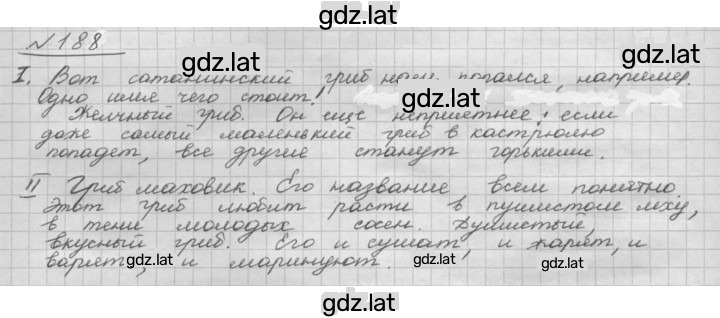 gdz.lat
№188
gdz.lat
gdz.lat
I. Вот сатанинский гриб нам попался, например.
Одно имя чего стоит!
gdz.lat
Желчный гриб. Он еще неприятнее: если
даже самый маленький гриб в кастрюлю
попадет, все другие станут горькими.
gdz.lat
II Гриб маховик. Его название всем понятно.
gdz.lat
Этот гриб любит расти в пушистом мху,
в тени молодых сосен. Душистый,
вкусный гриб. Его и сушат, и жарят, и
варят, и маринуют.
gdz.lat
gdz.lat
gdz.lat